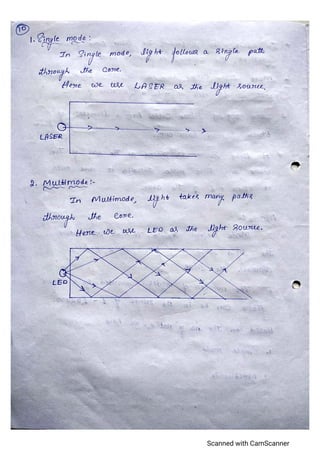 10
1. Single mode :
In Single mode, light follows a single path
through the core.
Here we use LASER as the light source.
LASER
2. Multimode :-
In Multimode, light takes many paths
through the core.
Here we use LED as the light source.
LED
Scanned with CamScanner